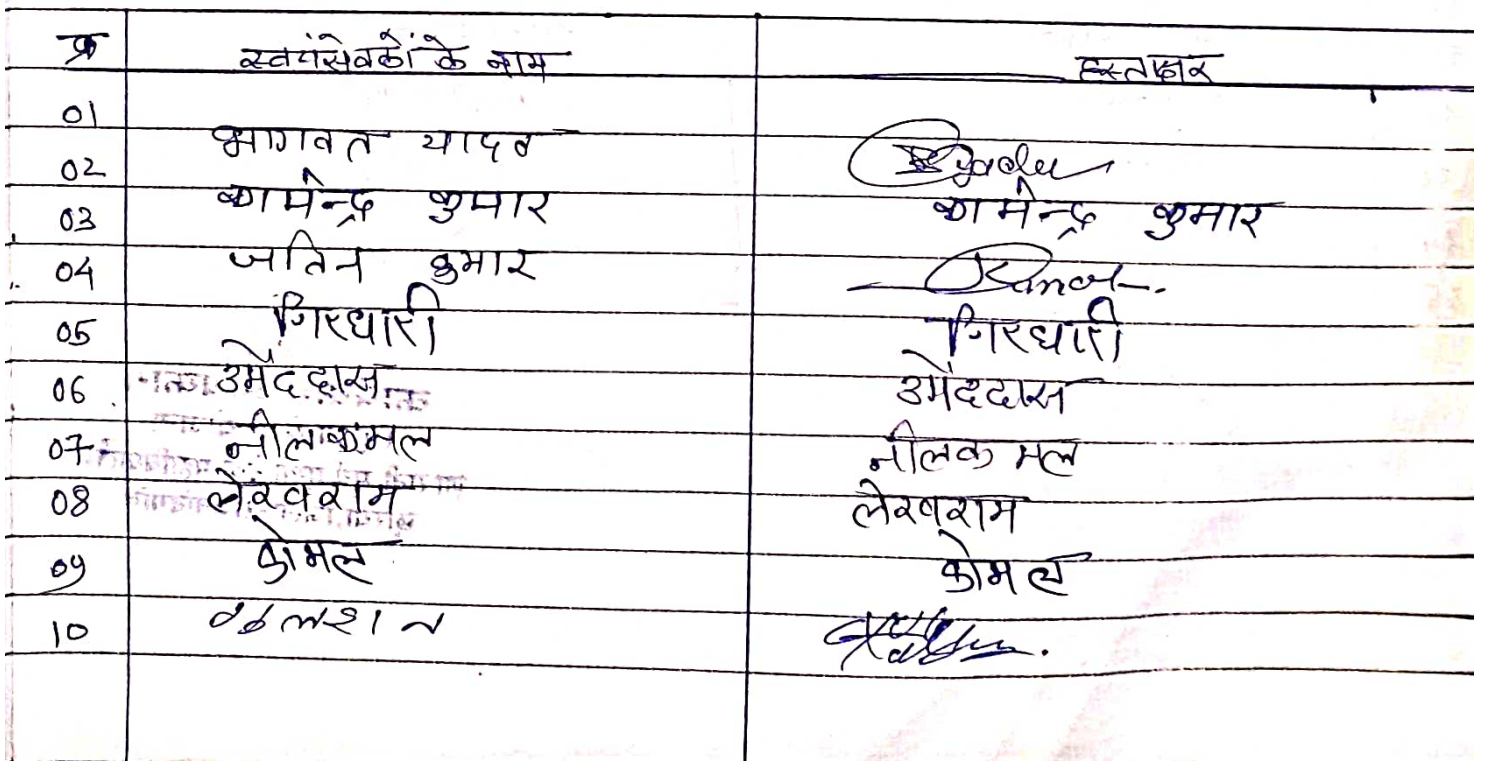 क्र स्वयंसेवकों के नाम हस्ताक्षर
01
भागवत यादव
02
कामेन्द्र कुमार कामेन्द्र कुमार
03
जतिन कुमार
04
गिरधारी गिरधारी
05
उमेददास उमेददास
06
नीलकमल नीलकमल
07
लेखराम लेखराम
08
कोमल कोमल
09
10